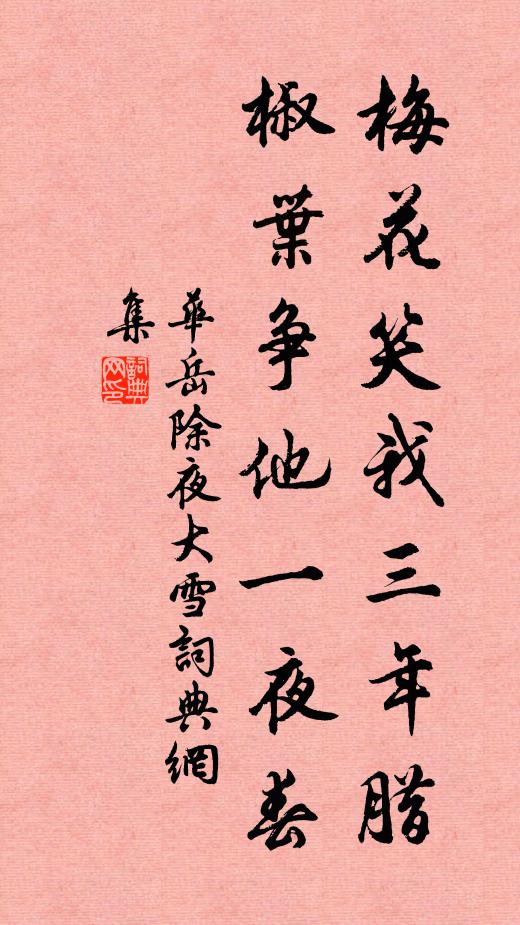 梅花笑我三年腊
椒葉争他一夜春
華岳除夜大雪詞典網
集
詞典
网印